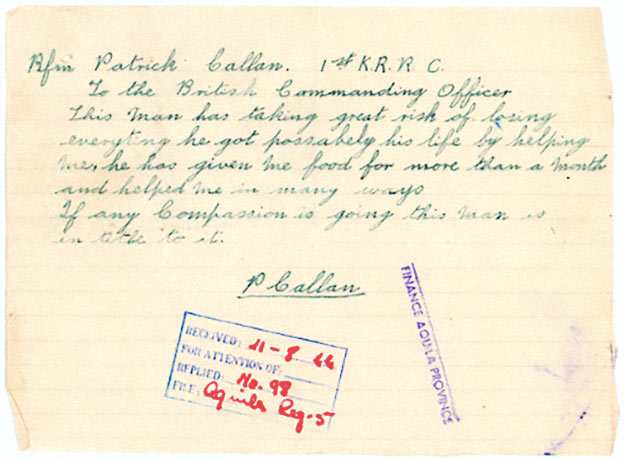 Rfm Patrick Callan. 1st K.R.R.C.
To the British Commanding Officer
This man has taking great risk of losing
everyting he got possabely his life by helping
me, he has given me food for more than a month
and helped me in many ways
If any Compassion is going this man is
in title to it.
P Callan
FINANCE AQUILA PROVINCE
RECEIVED: 21-8 44
FOR ATTENTION OF:
REPLIED: No. 98
FILE: Aquila Reg-5